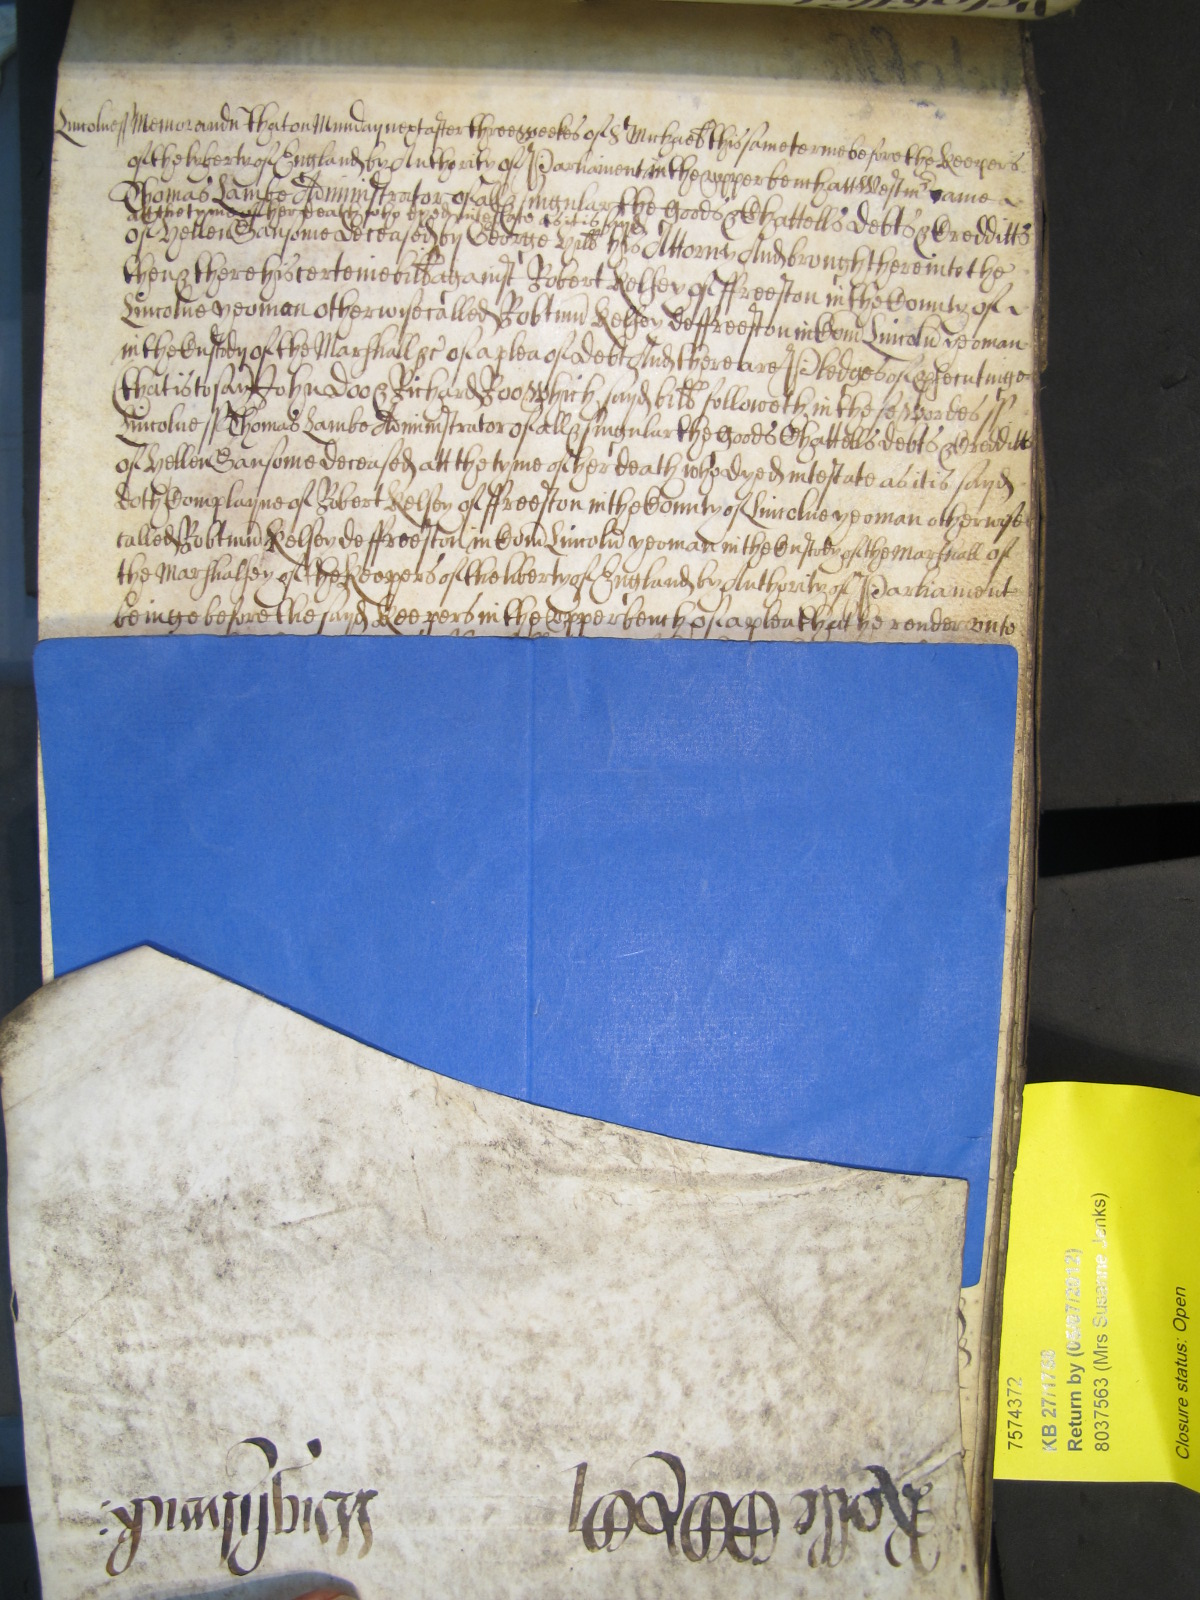 Lincolne ss Memorand That on Munday next after three weekes of St Michaell this same terme before the Keepers
of the liberty of England by Authority of Parliament in the upper bench att Westmr came
Thomas Lambe Administrator of all & singular the Goods & Chattells debts & Credditts
att the tyme of her death who dyed intestate as it is sayd
of Hellen Sansome deceased by George his Attorny And brought here into the
then & there his certeine bill against Robert Kelsey of ffreeston in the County of
Lincolne yeoman otherwise called Robtum Kelsey de ffreeston in Com Lincoln yeoman
in the Custody of the Marshall &c of a plea of debt And there are Pledges of prosecutinge
that is to say John Doo & Richard Roo Which sayd bill followeth in these wordes ss
Lincolne ss Thomas Lambe Administrator of all & singular the Goods Chattells debts & Credditts
of Hellen Sansome deceased att the tyme of her death who dyed intestate as it is sayd
doth Complayne of Robert Kelsey of ffreeston in the County of Lincolne yeoman otherwise
called Robtum Kelsey de ffreeston in Com Lincoln yeoman in the Custody of the Marshall of
the Marshalsey of the Keepers of the liberty of England by Authority of Parliament
beinge before the sayd Keepers in the upper bench of a plea that he render unto
7574372
KB 27/1750
Return by (05/07/2012)
8037563 (Mrs Susanne Jenks)
Closure status: Open
Rolle